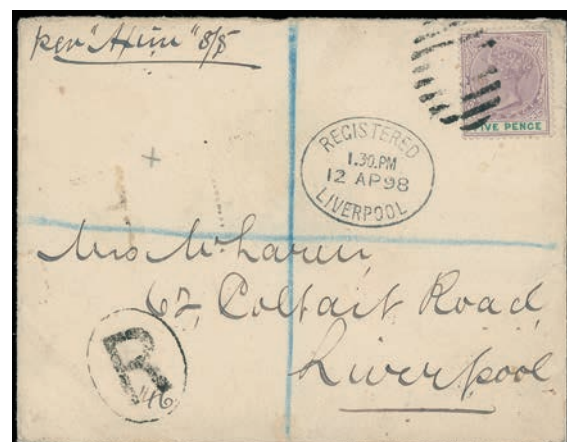 per "Axim" S/S
FIVE PENCE
REGISTERED
1.30.PM
12 AP 98
LIVERPOOL
Mrs McLaren
62, Coltart Road
Liverpool
R
46